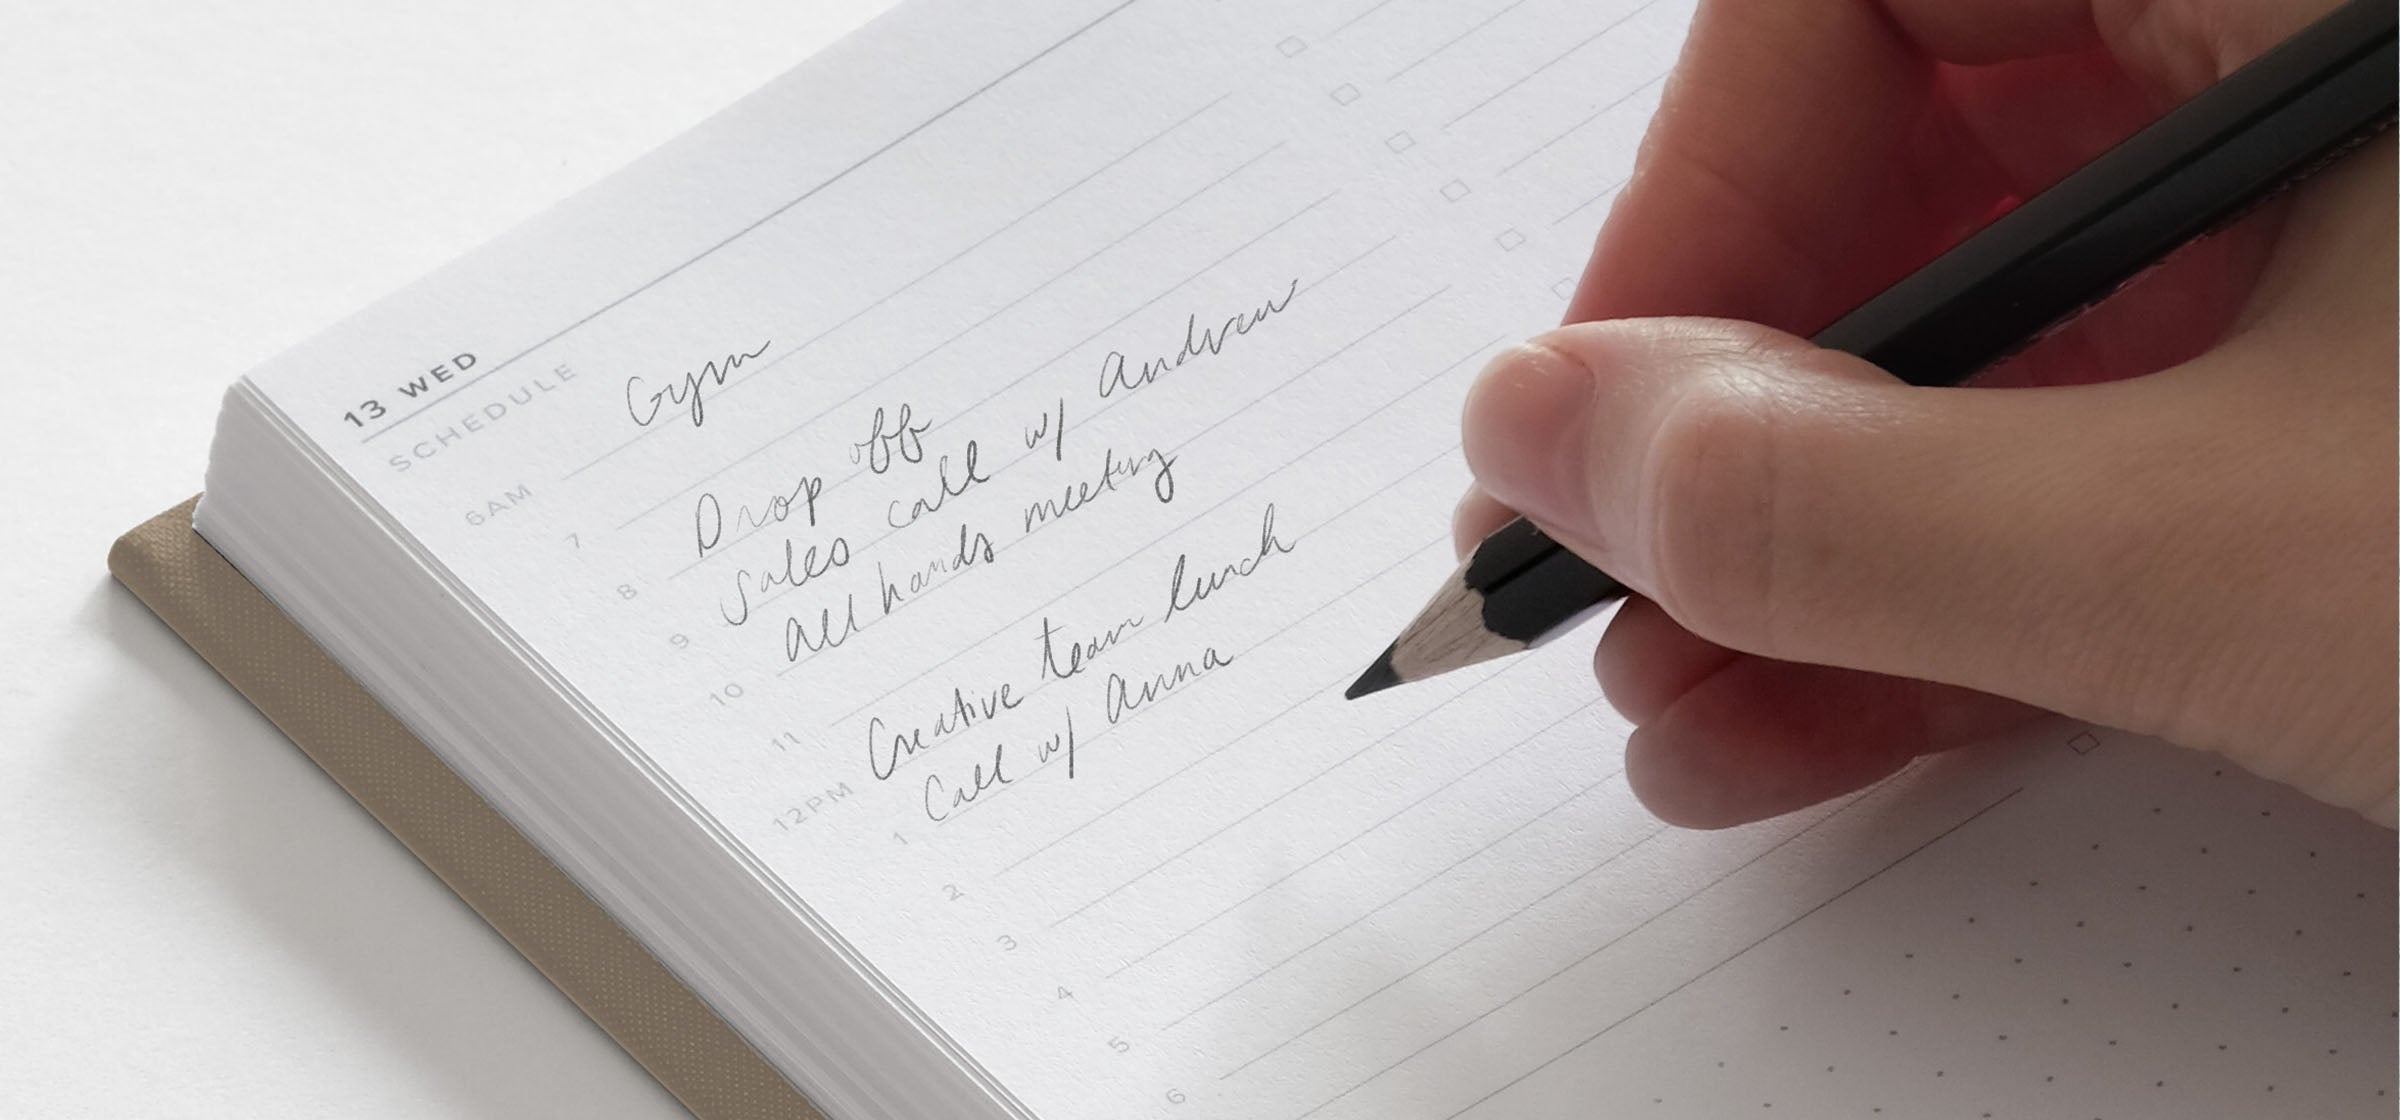 13 WED
SCHEDULE
6AM Gym
7
8 Drop off
9 Sales call w/ Andrew
10 All hands meeting
11
12PM Creative team lunch
1 Call w/ Anna
2
3
4
5
6